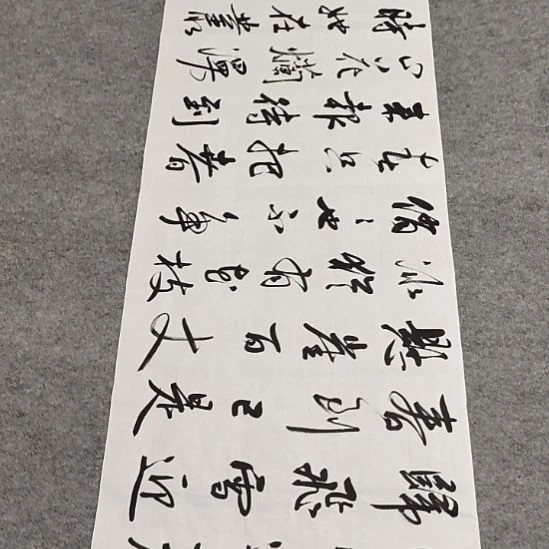 歸飛雪迎
春到已是
懸崖百丈
冰猶有花枝
俏〻也不爭
春只把春
来報待到
山花爛漫
時她在叢